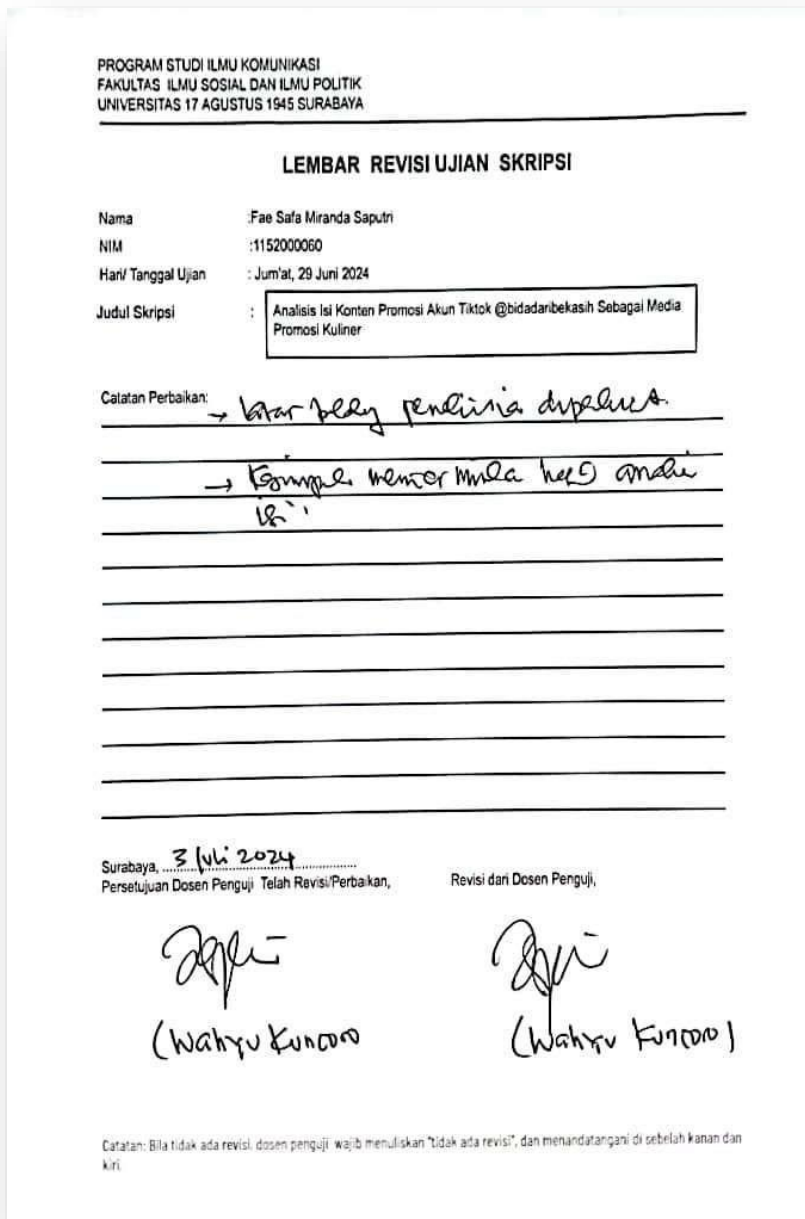 PROGRAM STUDI ILMU KOMUNIKASI
FAKULTAS ILMU SOSIAL DAN ILMU POLITIK
UNIVERSITAS 17 AGUSTUS 1945 SURABAYA
LEMBAR REVISI UJIAN SKRIPSI
Nama :Fae Safa Miranda Saputri
NIM :1152000060
Hari/ Tanggal Ujian : Jum'at, 29 Juni 2024
Judul Skripsi : Analisis Isi Konten Promosi Akun Tiktok @bidadaribekasih Sebagai Media
Promosi Kuliner
Catatan Perbaikan: →
→
Surabaya, 3 Juli 2024
Persetujuan Dosen Penguji Telah Revisi/Perbaikan, Revisi dari Dosen Penguji,
(Wahyu Kuncoro (Wahyu Kuncoro)
Catatan: Bila tidak ada revisi, dosen penguji wajib menuliskan "tidak ada revisi", dan menandatangani di sebelah kanan dan
kiri.